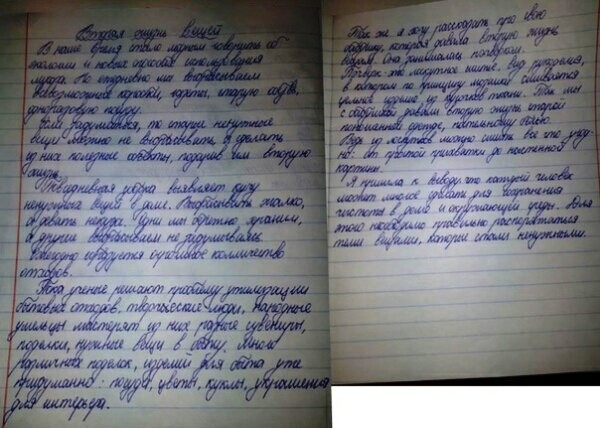 Вторая жизнь вещей
В наше время стало модным говорить об
экологии и новых способах использования
мусора. Но ежедневно мы выбрасываем
невероятное коробок, газеты, старую одежду,
одноразовую посуду.
Если задуматься, то старые ненужные
вещи можно не выбрасывать, а сделать
из них полезные предметы, подарив им вторую
жизнь.
Повседневная уборка выявляет кучу
ненужных вещей в доме. Выбрасывать жалко,
а девать некуда. Одни мы бережно храним,
а другие выбрасываем не задумываясь
Ежегодно образуется огромное количество
отходов.
Пока ученые решают проблему утилизации
бытовых отходов, творческие люди, народные
умельцы мастерят из них разные сувениры,
поделки, нужные вещи в быту. Много
различных поделок, изделий для быта уже
придуманно: посуда, цветы, куклы, украшения
для интерьера.
Так же я могу рассказать про свою
бабушку, которая давала вторую жизнь
вещам. Она занималась пэчворком.
Пэчворк это лоскутное шитье. Вид рукоделия,
в котором по принципу мозаики сшивается
цельное изделие из кусочков ткани. Так мы
с бабушкой давали вторую жизнь старой
поношенной одежде, постельному белью.
Ведь из лоскутков можно сшить все что угод-
но: от простой прихватки до настенной
картины.
Я пришла к выводу что каждый человек
может многое сделать для сохранения
чистоты в доме и окружающей среды. Для
этого необходимо правильно распорядиться
теми вещами, которые стали ненужными.